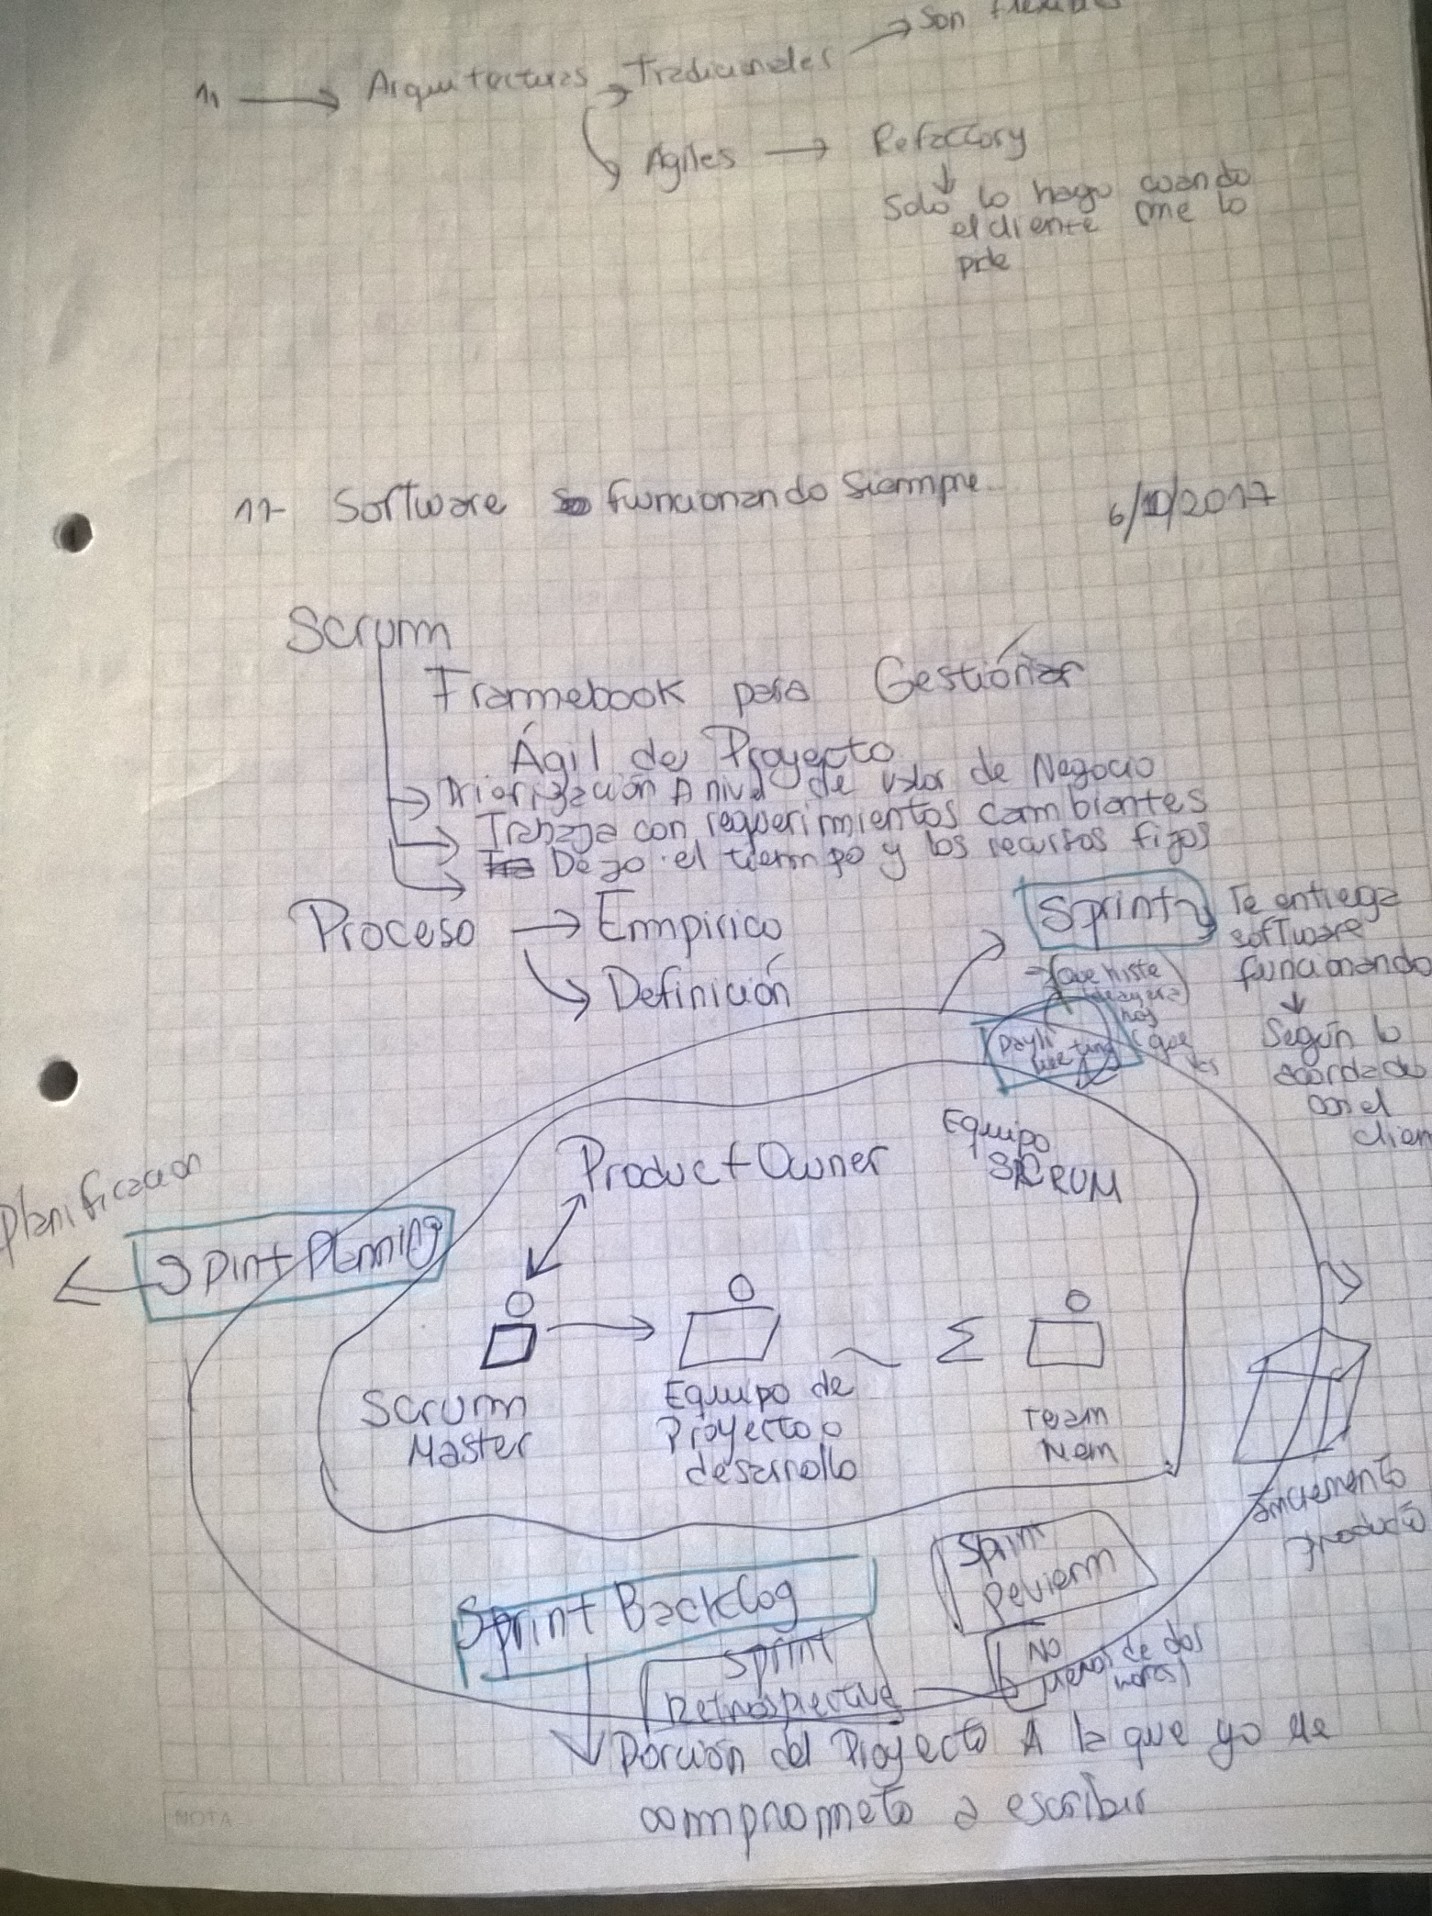 11 → Arquitecturas → Tradicionales → Son
Agiles → Refactory
Solo lo hago cuando
el cliente me lo
pide
11- Software funcionando Siempre
6/10/2017
Scrum
Framebook para Gestionar
Ágil de Proyecto
Priorización A nivel de valor de Negocio
Trabaja con requerimientos cambiantes
Dejo el tiempo y los recursos fijos
Proceso → Empirico
Definición
Sprint
Te entrega
software
funcionando
Según lo
acordado
con el
clien
que histe
hoy
que
Dayli
meeting
Product Owner
Equipo
SCRUM
Planificacion
Spint Planning
Scrum
Master
Equipo de
Proyecto o
desarrollo
Team
Mem
incremento
producto
Sprint
Revierm
Sprint Backlog
Sprint
Retrospective
NO
menos de dos
horas
Porción del Proyecto A la que yo me
comprometo a escribir
NOTA